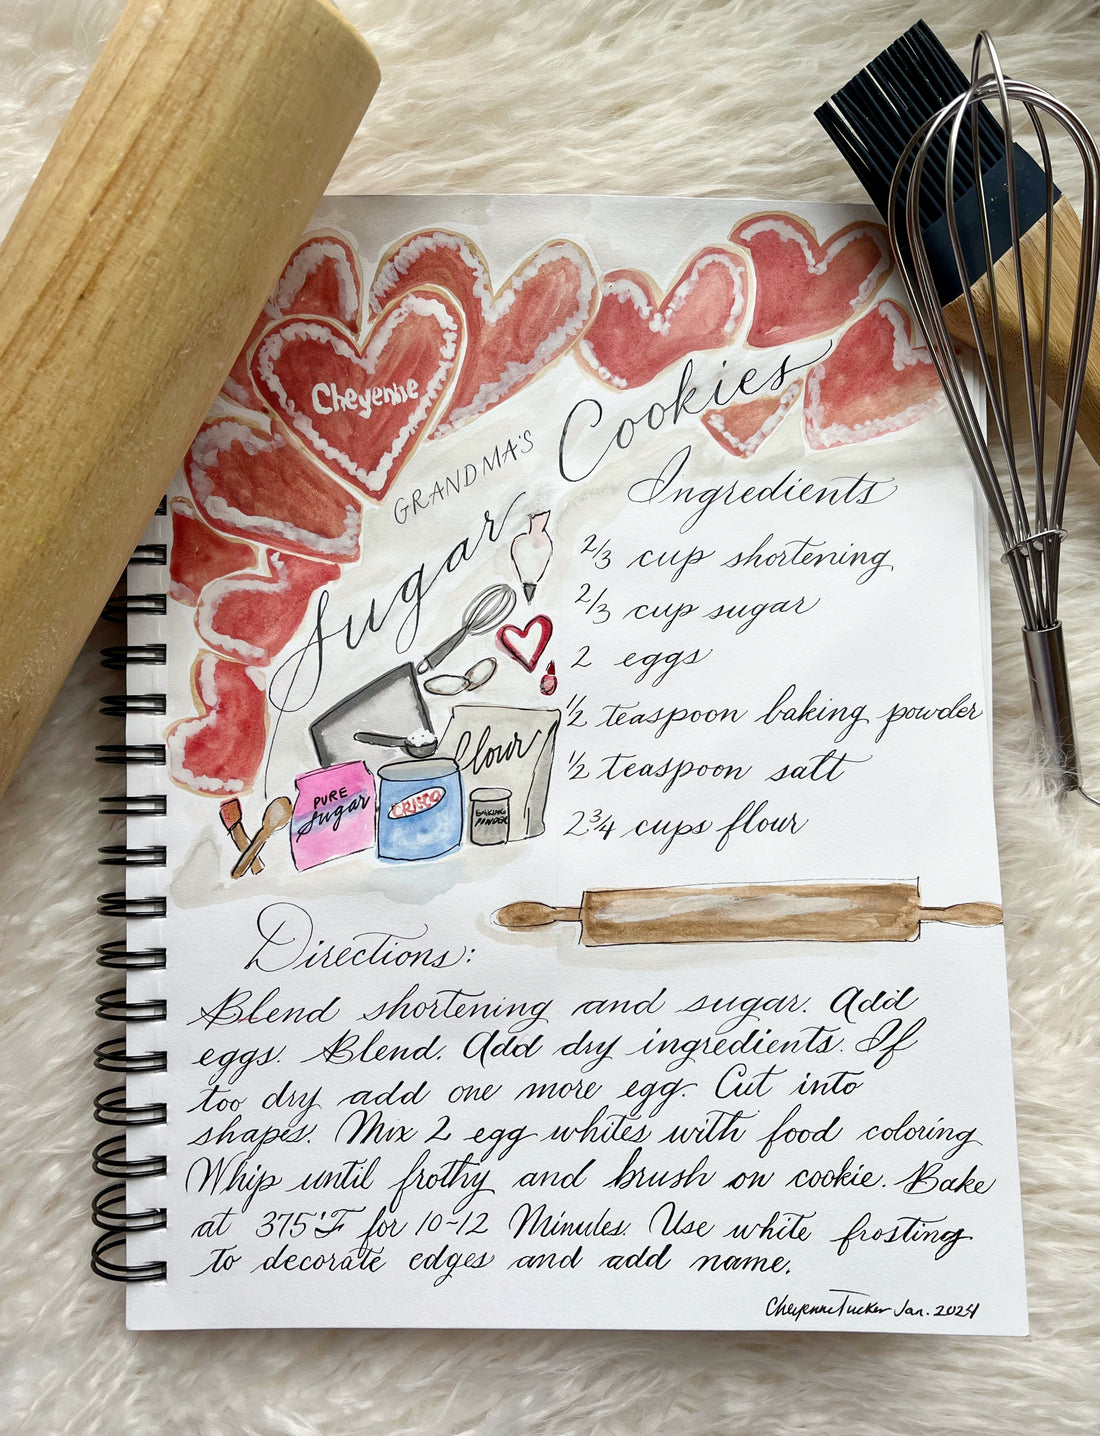 Cheyenne
GRANDMA'S
Sugar
Cookies
Ingredients
2/3 cup shortening
2/3 cup sugar
2 eggs
1/2 teaspoon baking powder
1/2 teaspoon salt
2 3/4 cups flour
flour
PURE
Sugar
CRISCO
BAKING
POWDER
Directions:
Blend shortening and sugar. Add
eggs. Blend. Add dry ingredients. If
too dry add one more egg. Cut into
shapes. Mix 2 egg whites with food coloring
Whip until frothy and brush on cookie. Bake
at 375°F for 10-12 Minutes. Use white frosting
to decorate edges and add name.
Cheyenne Tucker Jan. 2024